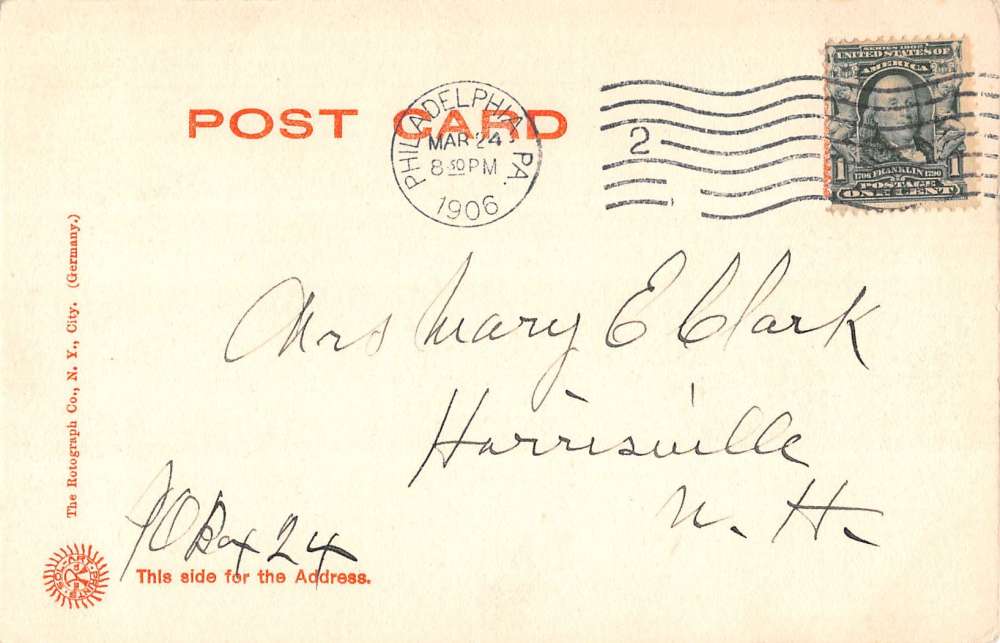 POST CARD
PHILADELPHIA, PA.
MAR 24
8 30 PM
1906
2
SERIES 1902
UNITED STATES OF
AMERICA
1 1706 FRANKLIN 1790 1
POSTAGE
ONE CENT
The Rotograph Co., N. Y., City. (Germany.)
Mrs Mary E Clark
Harrisville
N. H.
PO Box 24
SOL-ART-PRINTS
This side for the Address.